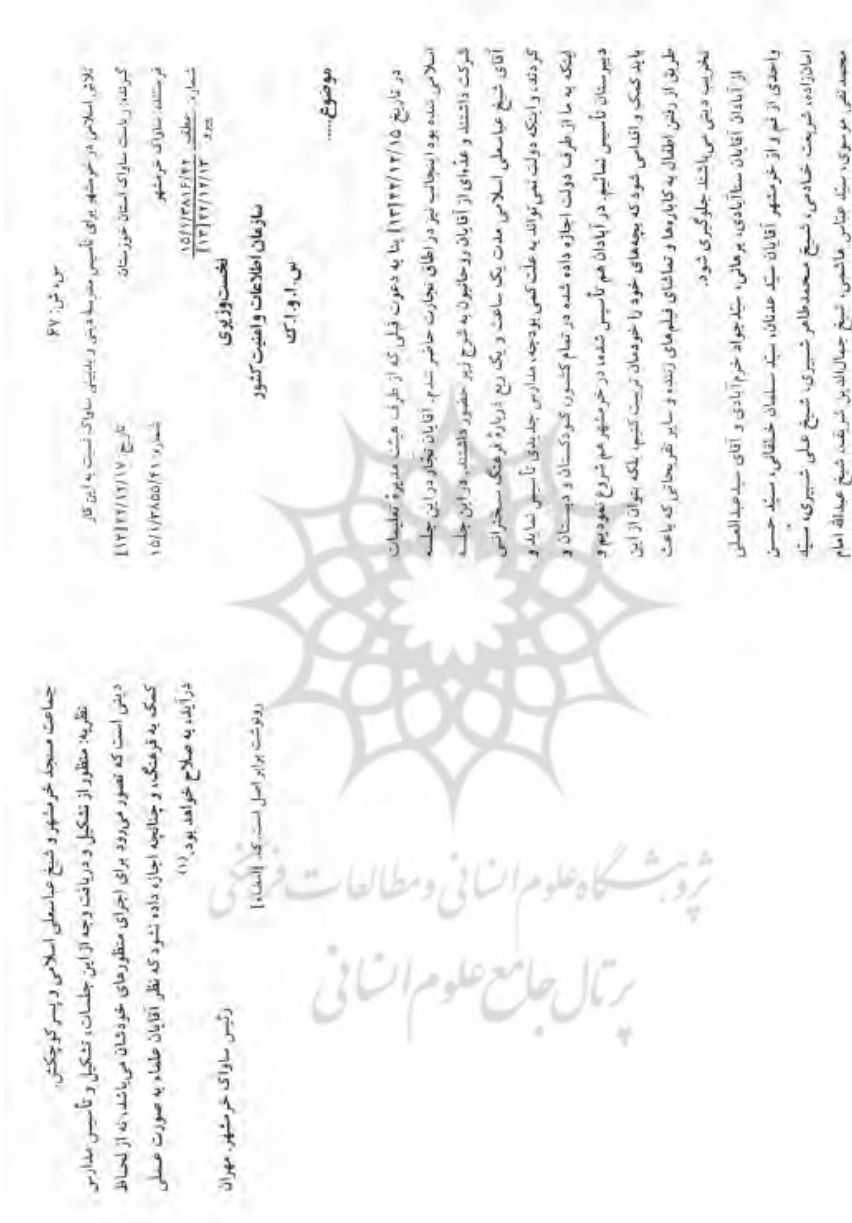 س، ش: ۶۷
تلاش اسلامی در خرمشهر برای تأسیس مدرسهٔ دینی و بدبینی ساواک نسبت به این کار
گیرنده: ریاست ساواک استان خوزستان.
تاریخ: ۴۴/۱۲/۱۷[۱۳]
فرستنده: ساواک خرمشهر
شماره: ۱۵/۱/۳۸۵۵/۴۱
شماره: عطف ۱۵/۱/۳۸۱۶/۴۲
پیرو ۴۴/۱۲/۱۳[۱۳]
سازمان اطلاعات و امنیت کشور
نخست‌وزیری
س. ا. و. ا. ک
موضوع.....
در تاریخ ۴۴/۱۲/۱۵[۱۳] بنا به دعوت قبلی که از طرف هیئت مدیرهٔ تعلیمات
اسلامی شده بود اینجانب نیز در اطاق تجارت حاضر شدم. آقایان تجّار در این جلسه
شرکت داشتند و عده‌ای از آقایان روحانیون به شرح زیر حضور داشتند. در این جلسه
آقای شیخ عباسعلی اسلامی مدت یک ساعت و یک ربع دربارهٔ فرهنگ سخنرانی
کردند، و اینکه دولت نمی‌تواند به علت کمی بودجه، مدارس جدیدی تأسیس نماید و
اینکه به ما از طرف دولت اجازه داده شده در تمام کشور، کودکستان و دبستان و
دبیرستان تأسیس نمائیم. در آبادان هم تأسیس شده، در خرمشهر هم شروع نمودیم و
باید کمک و اقدامی شود که بچه‌های خود را خودمان تربیت کنیم، بلکه بتوان از این
طریق از رفتن اطفال به کاباره‌ها و تماشای فیلم‌های زننده و سایر تفریحاتی که باعث
تخریب دینی می‌باشند جلوگیری شود.
از آبادان آقایان برهانی، سیّدجواد خرم‌آبادی و آقای سیدعبدالعلی
واحدی از قم و از خرمشهر آقایان سیّد عدنان، سیّد سلمان خلقانی، سیّد حسن
امان‌زاده، شریعت خادمی، شیخ محمدطاهر شبیری، شیخ علی شبیری، سیّد
محمدتقی موسوی، سیّد عباس هاشمی، شیخ جمال‌الدین شریف، شیخ عبدالله امام
جماعت مسجد خرمشهر و شیخ عباسعلی اسلامی و پسر کوچکش.
نظریه: منظور از تشکیل و دریافت وجه از این جلسات، تشکیل و تأسیس مدارس
دینی است که تصور می‌رود برای اجرای منظورهای خودشان می‌باشد، نه از لحاظ
کمک به فرهنگ، و چنانچه اجازه داده نشود که نظر آقایان علماء به صورت عملی
درآید، به صلاح خواهد بود.(۱)
رئیس ساواک خرمشهر. مهران
رونوشت برابر اصل است. کد. [امضاء]
پژوهشگاه علوم انسانی و مطالعات فرهنگی
پرتال جامع علوم انسانی